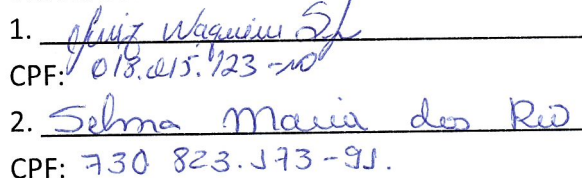 1. Luiz
CPF: 018.015.123-10
2. Selma Maria dos Rio
CPF: 730 823.173-91.